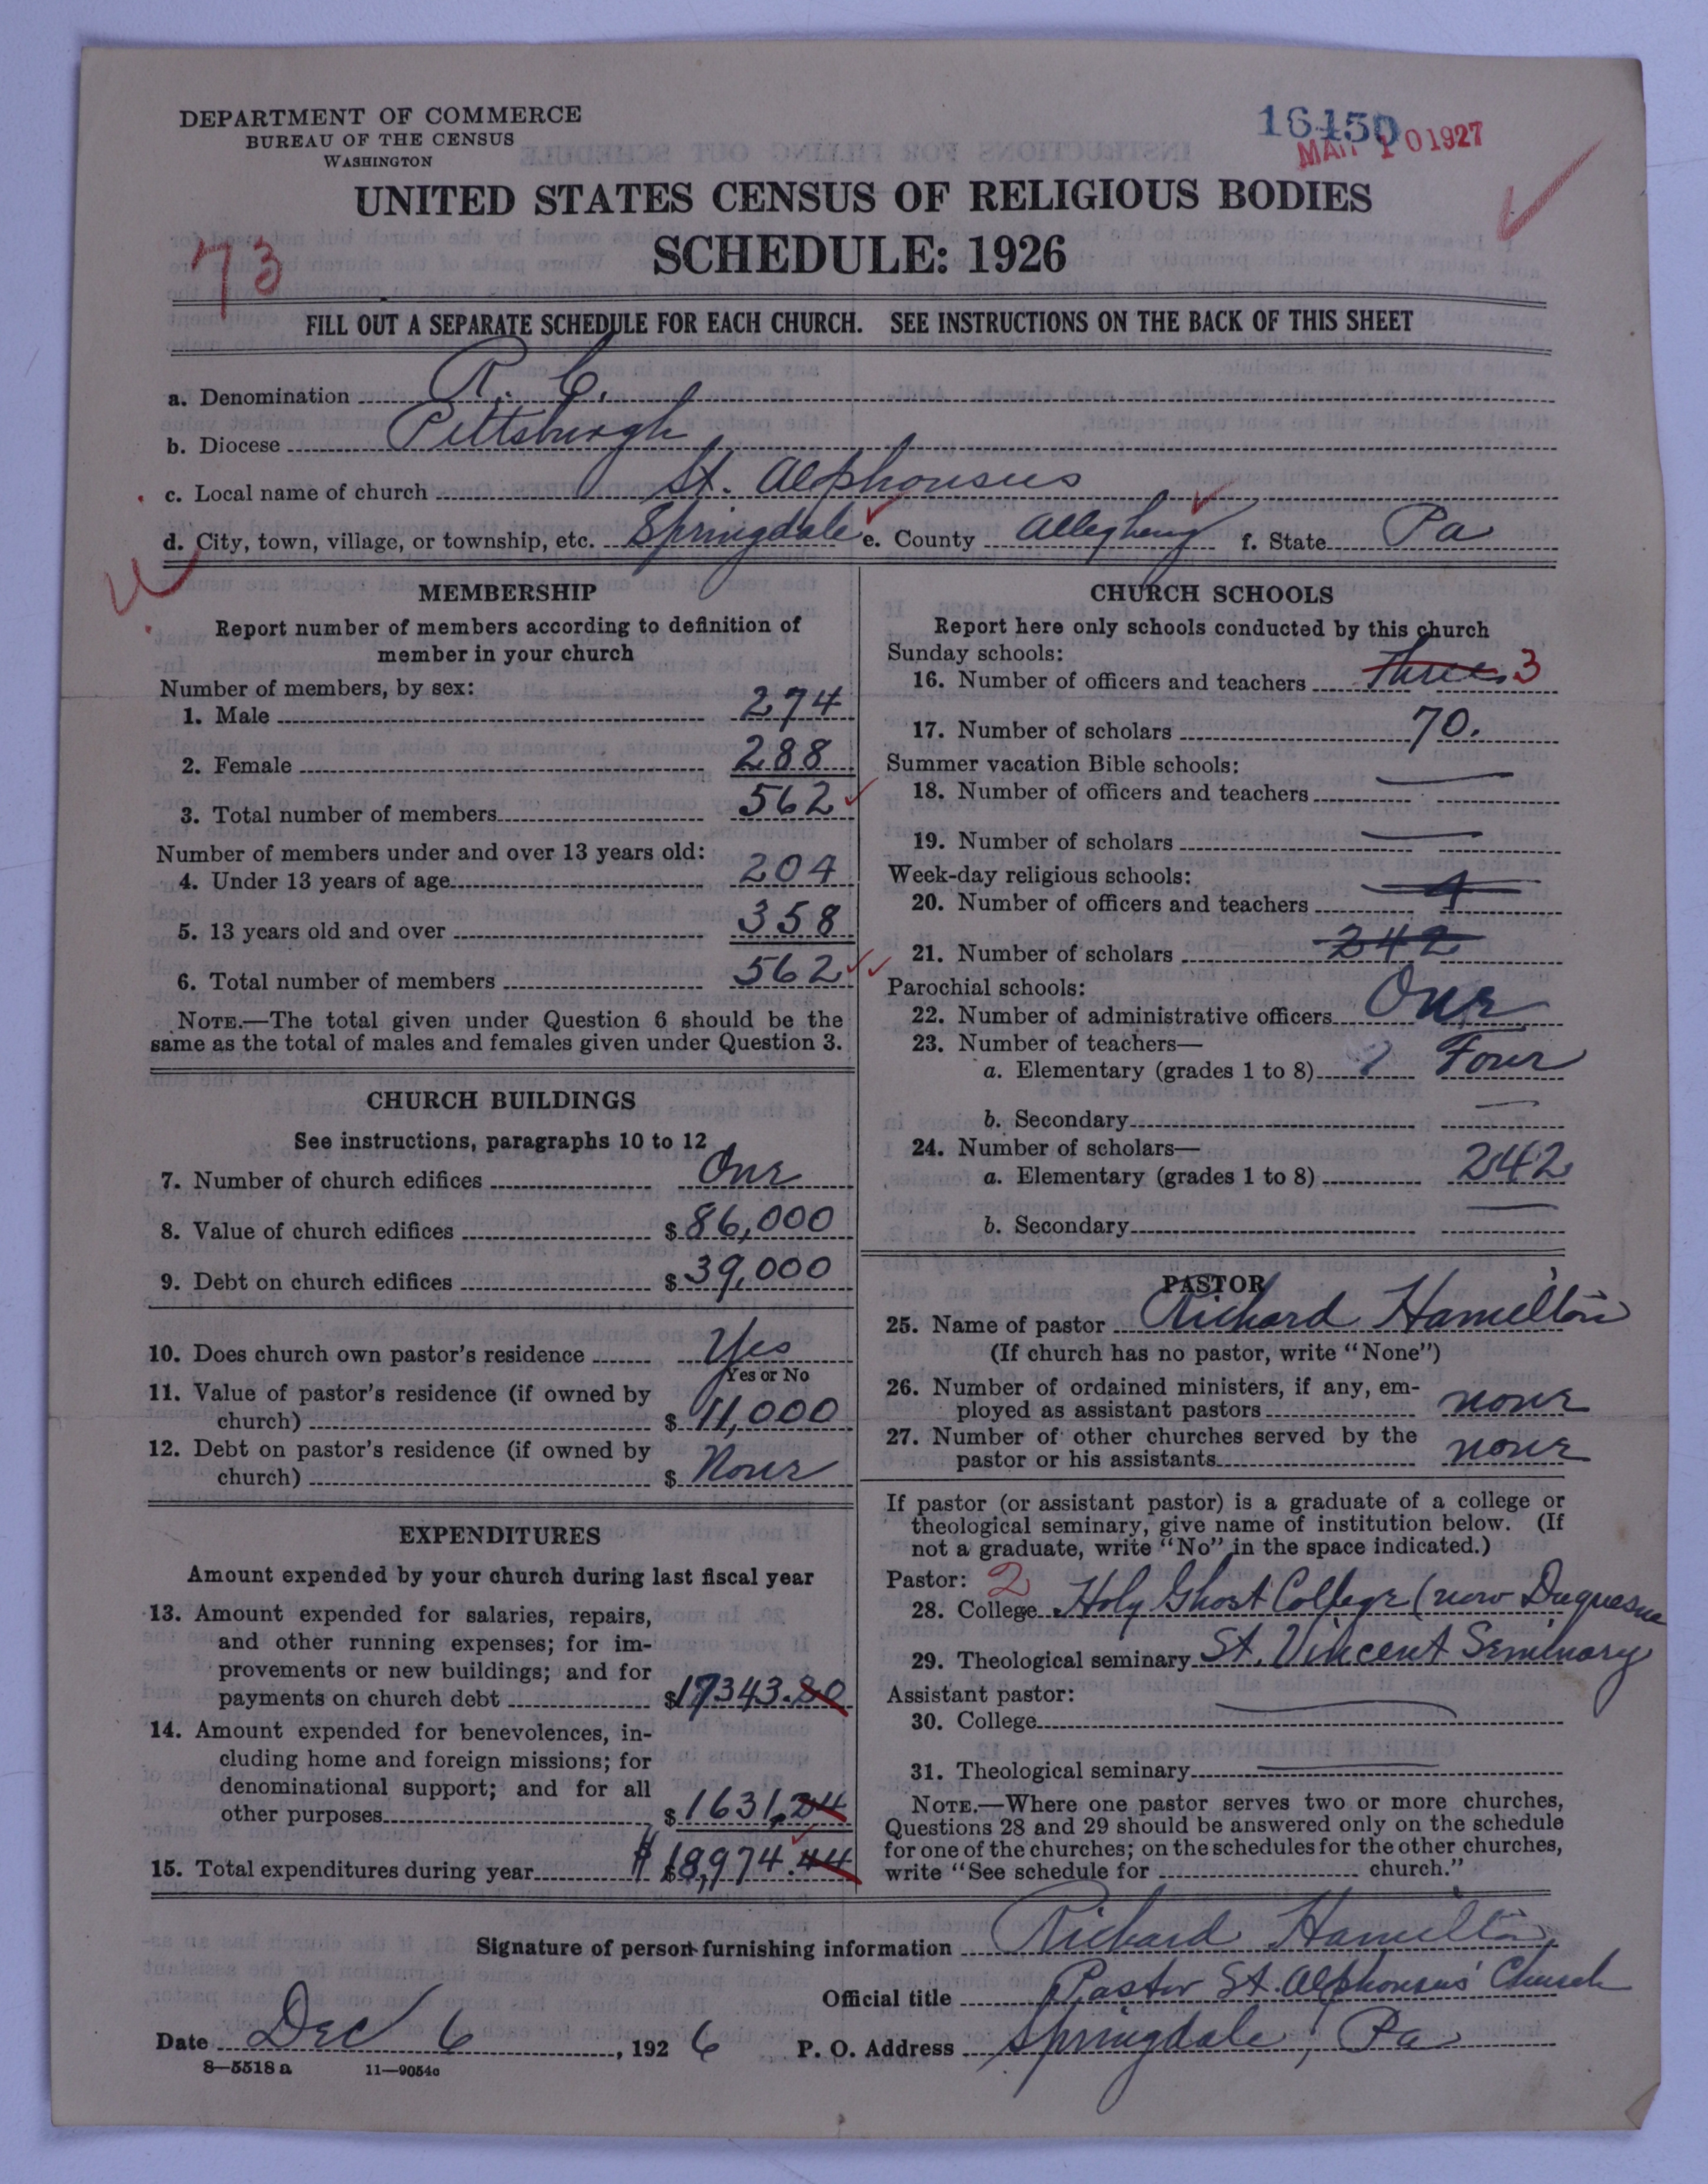 DEPARTMENT OF COMMERCE
BUREAU OF THE CENSUS
WASHINGTON
16450
MAR 10 1927
UNITED STATES CENSUS OF RELIGIOUS BODIES
SCHEDULE: 1926
73
FILL OUT A SEPARATE SCHEDULE FOR EACH CHURCH. SEE INSTRUCTIONS ON THE BACK OF THIS SHEET
a. Denomination R. C.
b. Diocese Pittsburgh
c. Local name of church St. Alphonsus
d. City, town, village, or township, etc. Springdale e. County Allegheny f. State Pa
MEMBERSHIP
Report number of members according to definition of
member in your church
Number of members, by sex:
1. Male 274
2. Female 288
3. Total number of members 562
Number of members under and over 13 years old:
4. Under 13 years of age 204
5. 13 years old and over 358
6. Total number of members 562
NOTE.—The total given under Question 6 should be the
same as the total of males and females given under Question 3.
CHURCH BUILDINGS
See instructions, paragraphs 10 to 12
7. Number of church edifices One
8. Value of church edifices $ 86,000
9. Debt on church edifices $ 39,000
10. Does church own pastor's residence Yes
Yes or No
11. Value of pastor's residence (if owned by
church) $ 11,000
12. Debt on pastor's residence (if owned by
church) $ None
EXPENDITURES
Amount expended by your church during last fiscal year
13. Amount expended for salaries, repairs,
and other running expenses; for im-
provements or new buildings; and for
payments on church debt $17343.20
14. Amount expended for benevolences, in-
cluding home and foreign missions; for
denominational support; and for all
other purposes $1631.24
15. Total expenditures during year $ $18,974.44
CHURCH SCHOOLS
Report here only schools conducted by this church
Sunday schools:
16. Number of officers and teachers three 3
17. Number of scholars 70.
Summer vacation Bible schools:
18. Number of officers and teachers —
19. Number of scholars —
Week-day religious schools:
20. Number of officers and teachers 4
21. Number of scholars 242
Parochial schools:
22. Number of administrative officers One
23. Number of teachers—
a. Elementary (grades 1 to 8) Four
b. Secondary —
24. Number of scholars—
a. Elementary (grades 1 to 8) 242
b. Secondary —
PASTOR
25. Name of pastor Richard Hamilton
(If church has no pastor, write "None")
26. Number of ordained ministers, if any, em-
ployed as assistant pastors none
27. Number of other churches served by the
pastor or his assistants none
If pastor (or assistant pastor) is a graduate of a college or
theological seminary, give name of institution below. (If
not a graduate, write "No" in the space indicated.)
Pastor: 2
28. College Holy Ghost College (now Duquesne
29. Theological seminary St. Vincent Seminary
Assistant pastor:
30. College —
31. Theological seminary —
NOTE.—Where one pastor serves two or more churches,
Questions 28 and 29 should be answered only on the schedule
for one of the churches; on the schedules for the other churches,
write "See schedule for church."
Signature of person furnishing information Richard Hamilton
Official title Pastor St. Alphonsus' Church
Date Dec 6, 1926 P. O. Address Springdale, Pa
8—5518 a 11—9054c